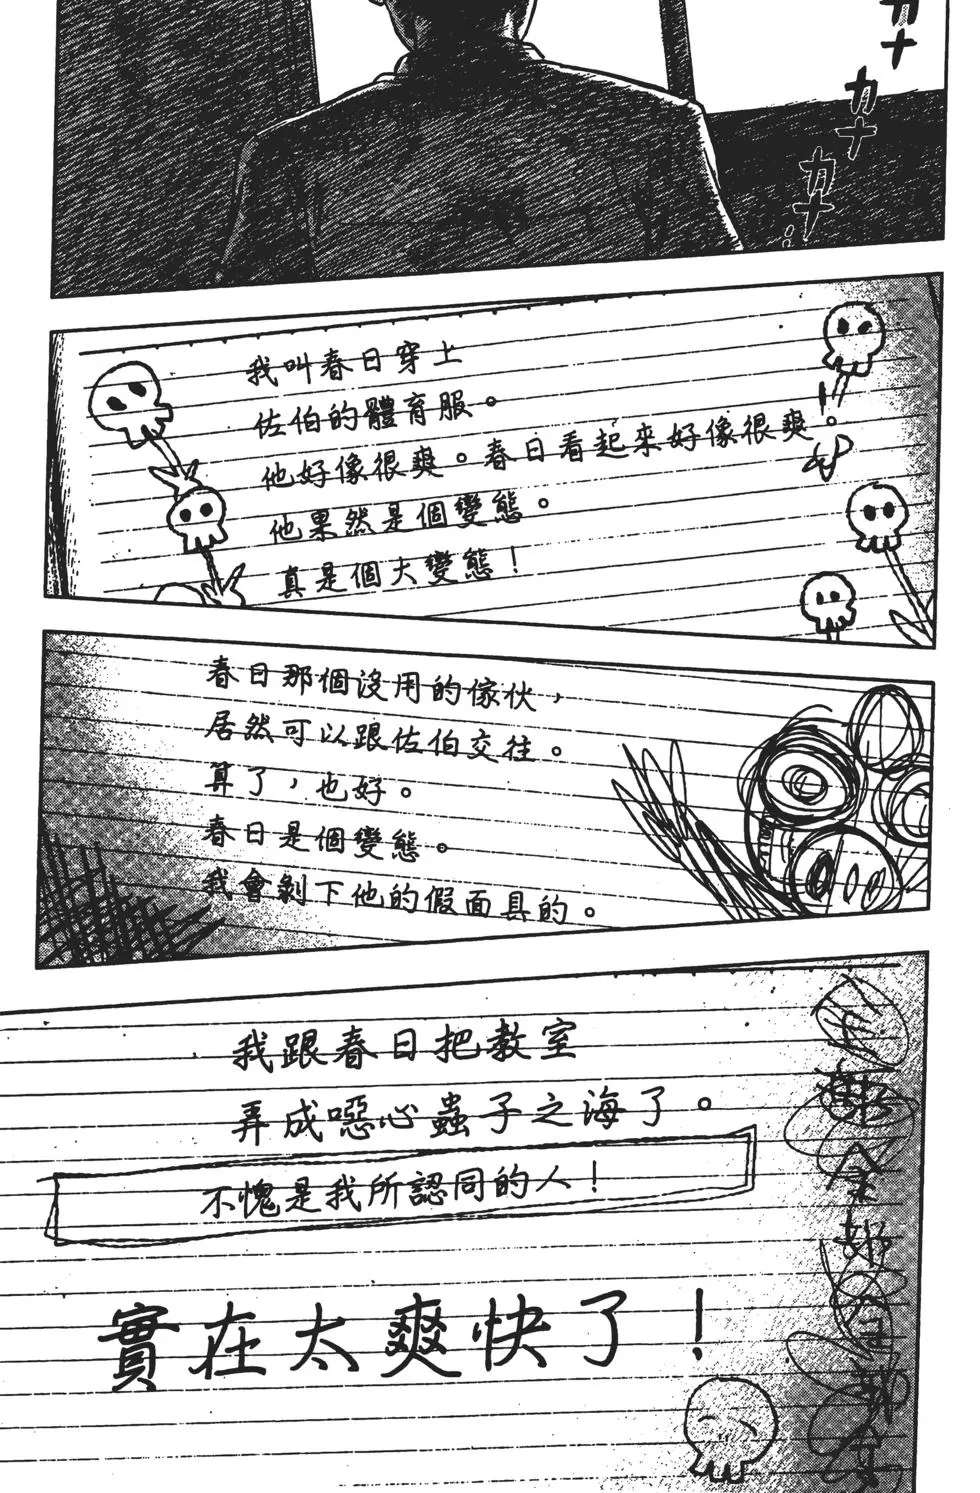 カナ
カナ
カナ
我叫春日穿上
佐伯的體育服。
他好像很爽。春日看起來好像很爽。
他果然是個變態。
真是個大變態！
春日那個沒用的傢伙，
居然可以跟佐伯交往。
算了，也好。
春日是個變態。
我會剝下他的假面具的。
我跟春日把教室
弄成噁心蟲子之海了。
不愧是我所認同的人！
實在太爽快了！